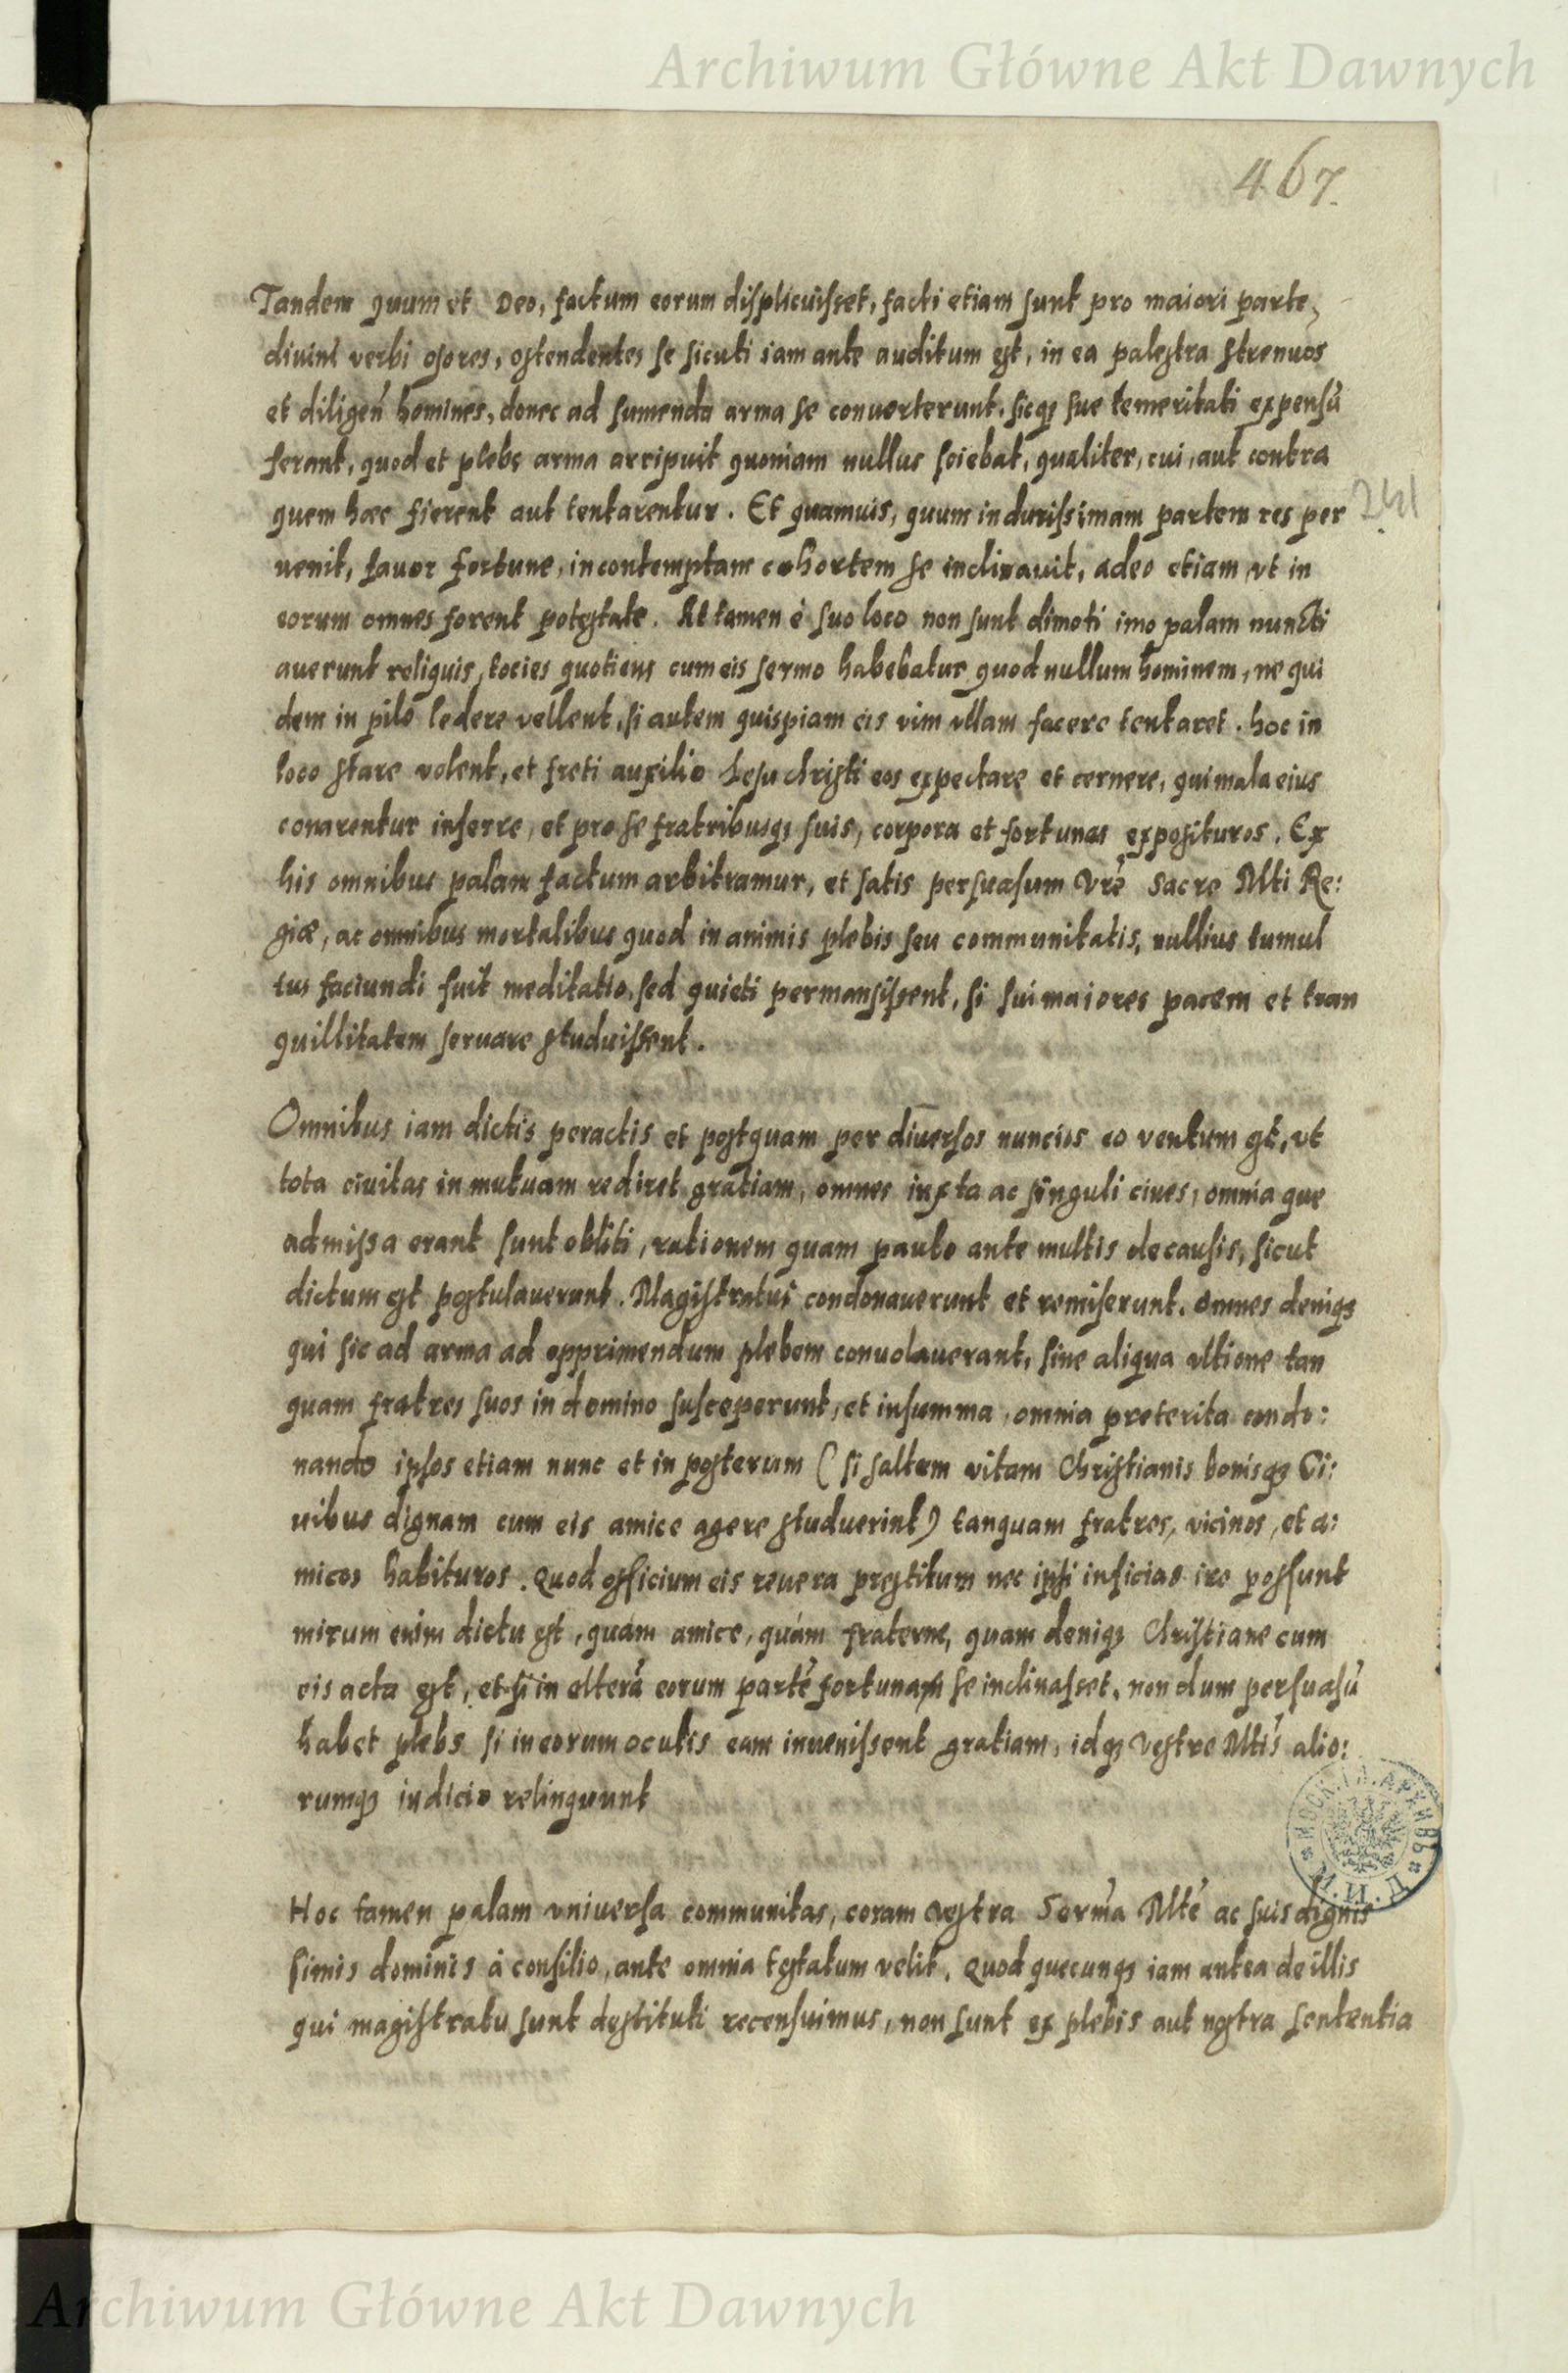 Archiwum Główne Akt Dawnych
467.
Tandem quum et Deo, factum eorum displicuisset, facti etiam sunt pro maiori parte,
diuini verbi osores, ostendentes se sicuti iam ante auditum est, in ea palestra strenuos
et diligeń homines, donec ad sumenda arma se conuerterunt. sicq; sue temeritati expensū
ferant, quod et plebs arma arripuit quoniam nullus sciebat, qualiter, cui, aut contra
quem hæc fierent aut tentarentur. Et quamuis, quum in durissimam partem res per
241
uenit, fauor fortune, in contemptam cohortem se inclinauit, adeo etiam vt in
eorum omnes forent potestate. At tamen è suo loco non sunt dimoti imo palam nuncti
auerunt reliquis, tocies quotiens cum eis sermo habebatur quod nullum hominem, ne qui
dem in pilo ledere vellent, si autem quispiam eis vim vllam facere tentaret. hoc in
loco stare volent, et freti auxilio Iesu christi eos expectare et cernere, qui mala eius
conarentur inferre, et pro se fratribusq; suis, corpora et fortunas exposituros. Ex
his omnibus palam factum arbitramur, et satis persuasum Vrē Sacre Mti Re:
giæ, ac omnibus mortalibus quod in animis plebis seu communitatis, nullius tumul
tus faciundi fuit meditatio, sed quieti permansissent, si sui maiores pacem et tran
quillitatem seruare studuissent.
Omnibus iam dictis peractis et postquam per diuersos nuncios eo ventum est, vt
tota ciuitas in mutuam rediret gratiam, omnes iuxta ac singuli ciues, omnia que
admissa erant sunt obliti, rationem quam paulo ante multis de causis, sicut
dictum est postulauerunt. Magistratui condonauerunt et remiserunt. omnes deniq;
qui sic ad arma ad opprimendum plebem conuolauerant, sine aliqua vltione tan
quam fratres suos in domino susceperunt, et in summa, omnia preterita condo:
nando ipsos etiam nunc et in posterum (si saltem vitam Christianis bonisq; Ci:
uibus dignam cum eis amice agere studuerint) tanquam fratres, vicinos, et a:
micos habituros. Quod officium eis reuera prestitum nec ipsi inficias ire possunt
mirum enim dictu est, quàm amice, quàm fraterne, quam deniq; Christiane cum
eis acta est, et si in alterā eorum partē fortunam se inclinasset, non dum persuasū
habet plebs si in eorum oculis eam inuenissent gratiam, idq; Vestre Mtis alio:
rumq; iudicio relinquunt
Hoc tamen palam vniuersa communitas, coram vestra Serma Mte ac suis dignis
simis dominis à consilio, ante omnia testatum velit. Quod quecunq; iam antea de illis
qui magistratu sunt destituti recensuimus, non sunt ex plebis aut nostra sententia
Archiwum Główne Akt Dawnych